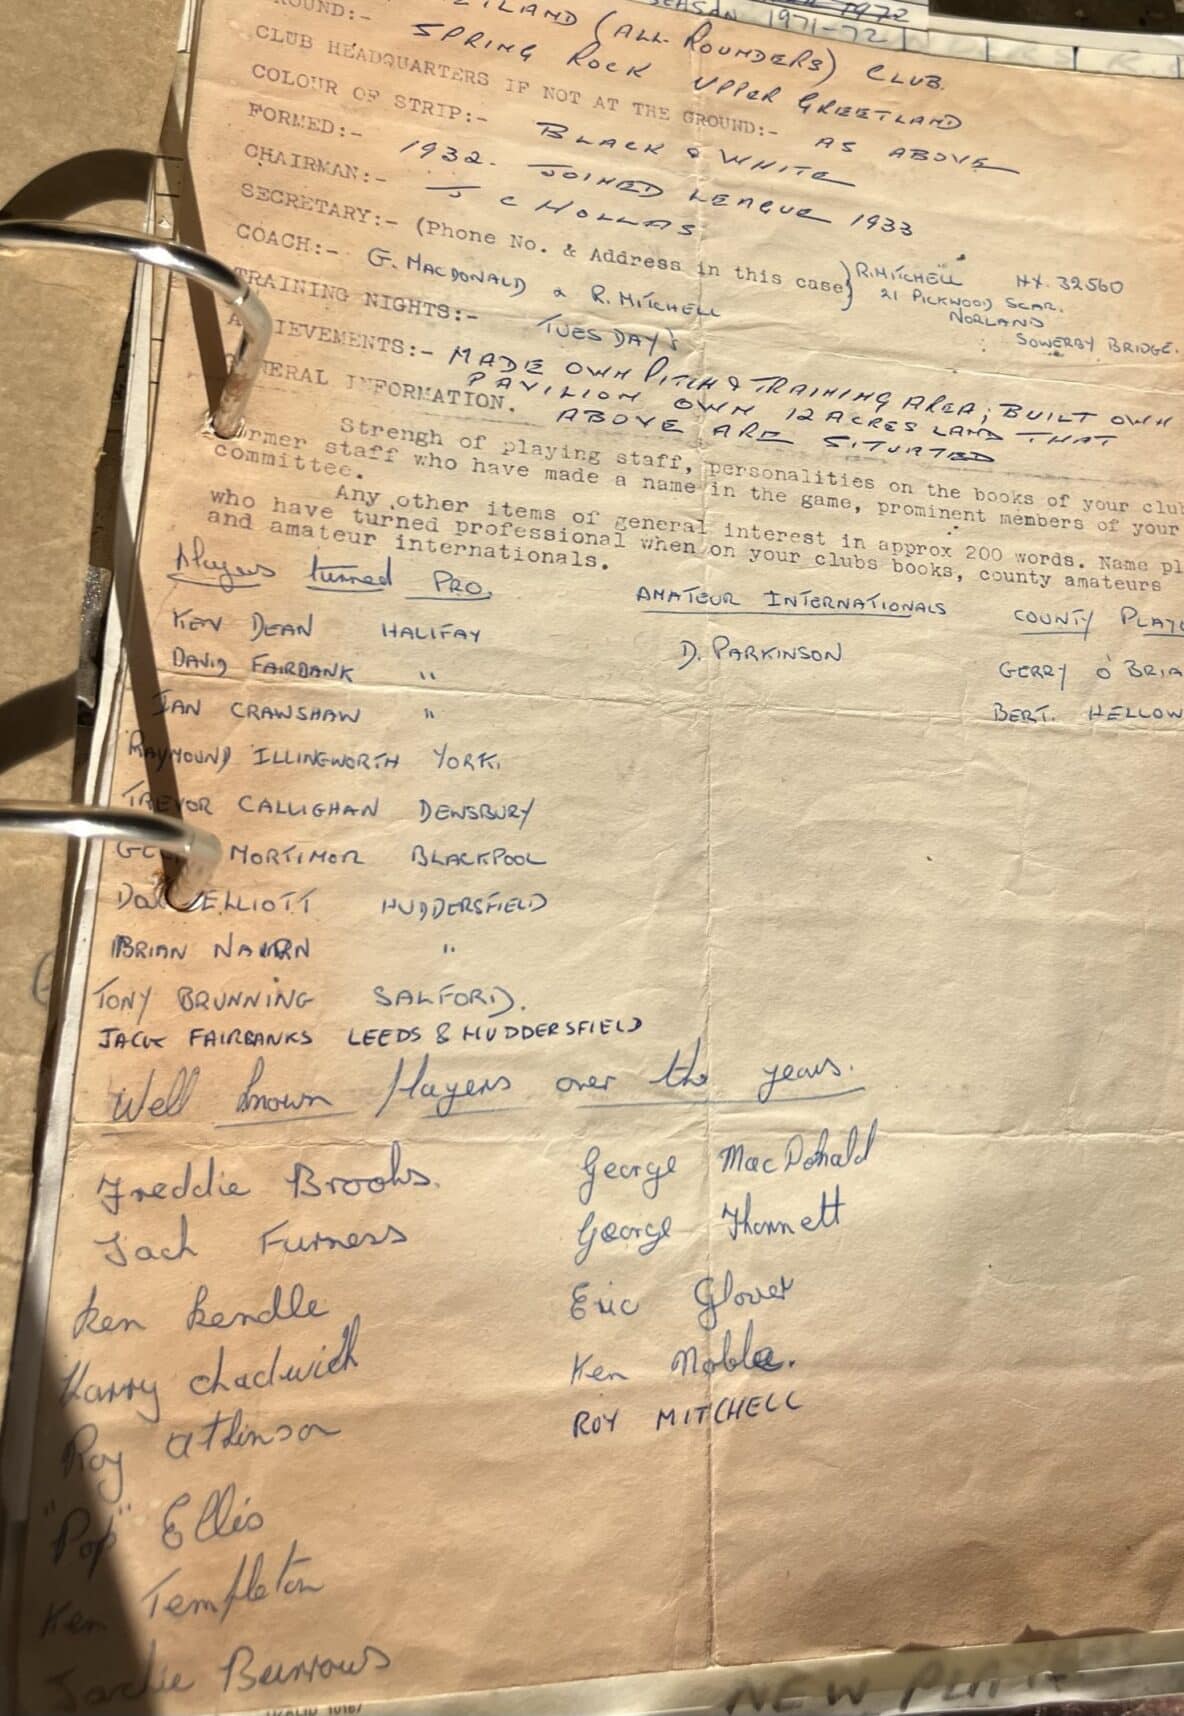 1972
SEASON 1971-72
(ALL-ROUNDERS) CLUB.
GROUND:- SPRING ROCK UPPER GREETLAND
CLUB HEADQUARTERS IF NOT AT THE GROUND:- AS ABOVE
COLOUR OF STRIP:- BLACK & WHITE
FORMED:- 1932. JOINED LEAGUE 1933
CHAIRMAN:- J C HOLLAS
SECRETARY:- (Phone No. & Address in this case) R.MITCHELL HX. 32560
21 PICKWOOD SCAR.
NORLAND
SOWERBY BRIDGE.
COACH:- G. MACDONALD & R. MITCHELL
TRAINING NIGHTS:- TUESDAYS
ACHIEVEMENTS:- MADE OWN PITCH & TRAINING AREA; BUILT OWN
PAVILION OWN 12 ACRES LAND THAT
ABOVE ARE SITUATED
GENERAL INFORMATION.
Strengh of playing staff, personalities on the books of your club
former staff who have made a name in the game, prominent members of your
committee.
Any other items of general interest in approx 200 words. Name pl
who have turned professional when on your clubs books, county amateurs
and amateur internationals.
Players turned PRO. AMATEUR INTERNATIONALS COUNTY PLAYE
KEN DEAN HALIFAX D. PARKINSON GERRY O'BRIA
DAVID FAIRBANK " BERT. HELLOW
IAN CRAWSHAW "
RAYMOUND ILLINGWORTH YORK.
TREVOR CALLIGHAN DEWSBURY
MORTIMOR BLACKPOOL
ELLIOTT HUDDERSFIELD
BRIAN "
TONY BRUNNING SALFORD.
JACK FAIRBANKS LEEDS & HUDDERSFIELD
Well known Players over the years.
Freddie Brooks. George MacDonald
Jack Furness George Thonnett
Ken Kendle Eric Glover
Harry Chadwick Ken Noble.
Roy Atkinson ROY MITCHELL
"Pop" Ellis
Ken Templeton
Jackie Burrows
NEW PLAY